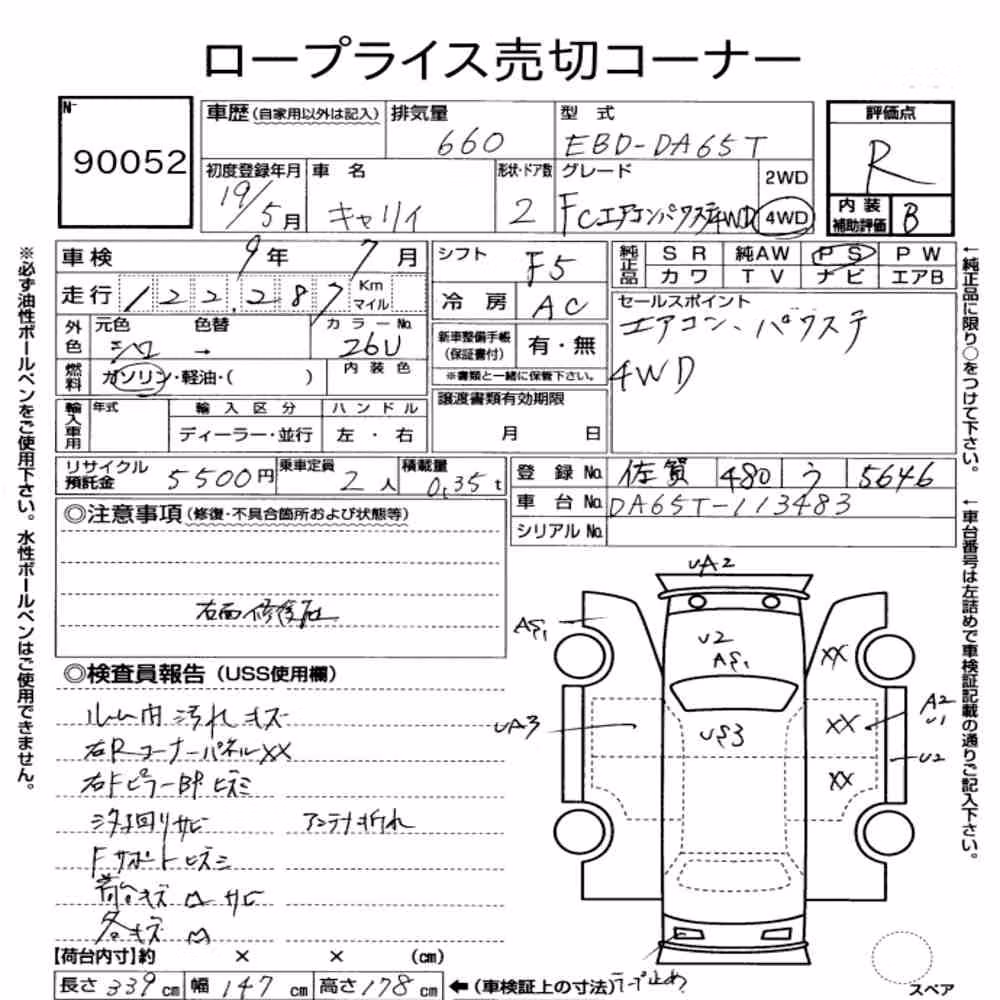 ロープライス売切コーナー
No.
90052
車歴 (自家用以外は記入)
排気量
660
型 式
EBD-DA65T
評価点
R
初度登録年月
19/5月
車 名
キャリイ
形状・ドア数
2
グレード
FCエアコンパワステ4WD
2WD
4WD
内 装
補助評価
B
車検 9年 7月
走行 122,287 Km
マイル
シフト
F5
冷 房
AC
純正品
S R
純AW
P S
P W
カ ワ
T V
ナ ビ
エアB
外色
元色 色替
シロ →
カラーNo.
26U
燃料
ガソリン・軽油・( )
内 装 色
新車整備手帳
(保証書付)
有・無
※書類と一緒に保管下さい。
セールスポイント
エアコン、パワステ
4WD
輸入車用
年式
輸 入 区 分
ディーラー・並行
ハ ン ド ル
左 ・ 右
譲渡書類有効期限
月 日
リサイクル
預託金
5500円
乗車定員
2人
積載量
0.35t
登 録 No.
佐賀 480 う 5646
車 台 No.
DA65T-113483
シリアルNo.
◎注意事項 (修復・不具合箇所および状態等)
右面修復歴
◎検査員報告 (USS使用欄)
ルーム内汚れキズ
右Rコーナーパネル XX
右FピラーBP ヒズミ
下回りサビ アンテナ折れ
Fサポートヒズミ
荷台キズ 凹 サビ
各キズ 凹
【荷台内寸】約 × × (cm)
長さ 339 cm 幅 147 cm 高さ 178 cm
←(車検証上の寸法)
テープ止め
スペア
UA2
U2
AS1
AS1
XX
UA3
US3
XX
A2
U1
U2
XX
※必ず油性ボールペンをご使用下さい。水性ボールペンはご使用できません。
←純正品に限り○をつけて下さい。
←車台番号は左詰めで車検証記載の通りご記入下さい。